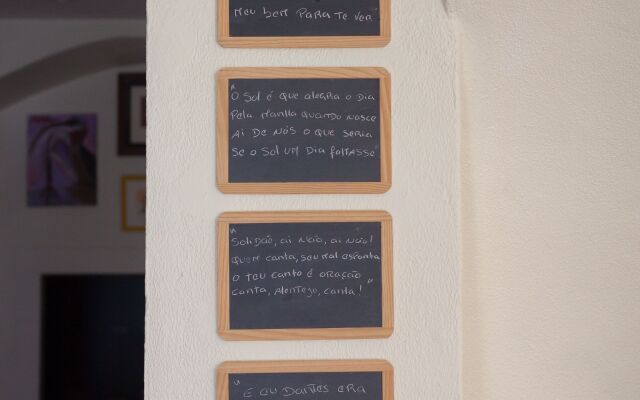 meu bem para te ver
"O Sol é que alegra o dia
Pela manhã quando nasce
Ai de nós o que seria
Se o Sol um dia faltasse"
"Solidão, ai não, ai não!
Quem canta, seu mal espanta
O teu canto é oração
Canta, Alentejo, canta!"
"E eu dantes era